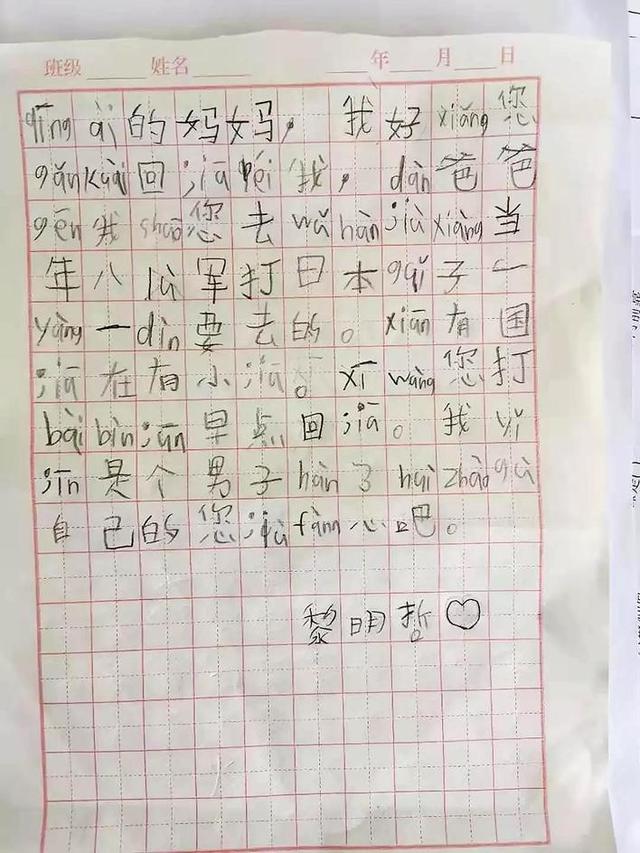 班级 姓名 年 月 日
qīng ài 的 妈 妈， 我 好 xiǎng 您
gǎn kuài 回 jiā péi 我， dàn 爸 爸
gēn 我 shuō 您 去 wǔ hàn jiù xiàng 当
年 八 lù 军 打 日 本 guǐ 子 一
yàng 一 dìn 要 去 的。 xiān 有 国
jiā 在 有 小 jiā。 xī wàng 您 打
bài bìn jūn 早 点 回 jiā。 我 yǐ
jīn 是 个 男 子 hàn 了 huì zhào gù
自 己 的 您 jiù fàng 心 吧。
黎 明 哲